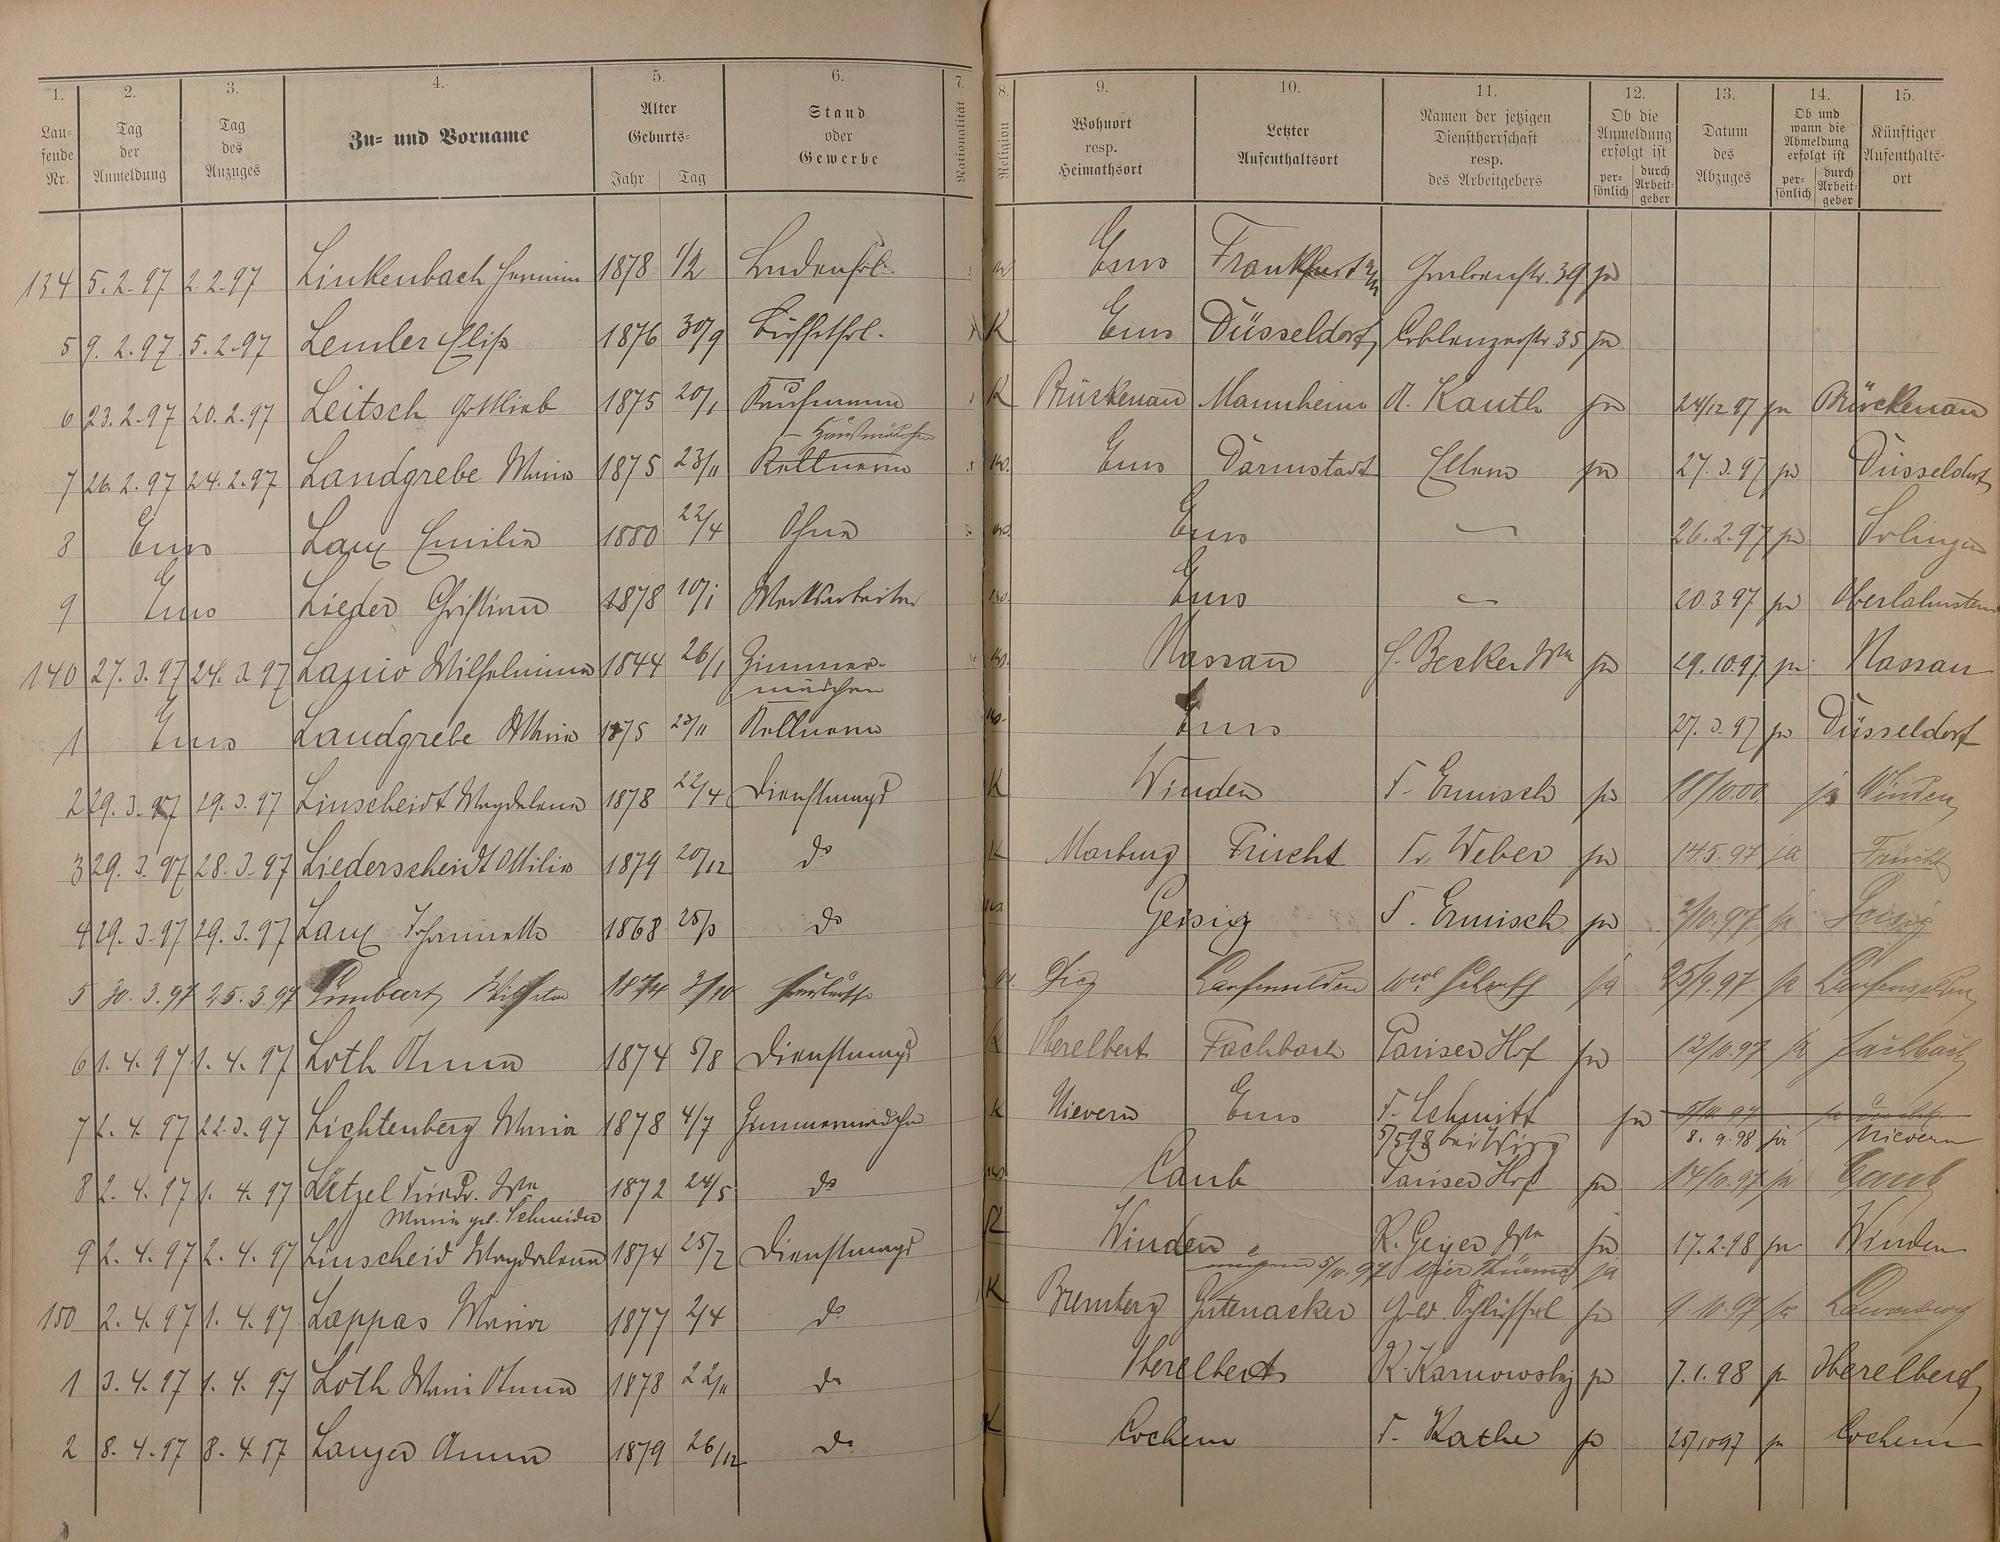 1. 2. 3. 4. 5. 6. 7. 8. 9. 10. 11. 12. 13. 14. 15.
Lau-
fende
Nr.
Tag
der
Anmeldung
Tag
des
Anzuges
Zu- und Vorname
Alter
Geburts-
Jahr Tag
Stand
oder
Gewerbe
Nationalität
Religion
Wohnort
resp.
Heimathsort
Letzter
Aufenthaltsort
Namen der jetzigen
Dienstherrschaft
resp.
des Arbeitgebers
Ob die
Anmeldung
erfolgt ist
per-
sönlich
durch
Arbeit-
geber
Datum
des
Abzuges
Ob und
wann die
Abmeldung
erfolgt ist
per-
sönlich
durch
Arbeit-
geber
Künftiger
Aufenthalts-
ort
134 5.2.97 2.2.97 Linkenbach 1878 1/2 Ems Frankfurt a/M 39 ja
5 9.2.97 5.2.97 Lemler Elise 1876 30/9 K Ems Düsseldorf Coblenzerstr. 35 ja
6 23.2.97 20.2.97 Leitsch Gottlieb 1875 20/1 Kaufmann K Brückenau Mannheim A. Kauth ja 24/12 97 ja Brückenau
Hausmädchen
7 26.2.97 24.2.97 Landgrebe Maria 1875 23/11 Kellnerin Ems Darmstadt ja 27.3.97 ja Düsseldorf
8 Ems Laux Emilie 1880 22/4 Ohne Ems — 26.2.97 ja Solingen
9 Ems Lieder Christian 1878 10/1 Werksarbeiter Ems — 20.3.97 ja Oberlahnstein
140 27.3.97 24.3.97 Wilhelmine 1844 26/1 Zimmer-
mädchen Nassau Becker Wwe ja 29.10.97 ja Nassau
1 Ems Landgrebe Maria 1875 23/11 Kellnerin Ems 27.3.97 ja Düsseldorf
2 29.3.97 29.3.97 Linscheidt Magdalena 1878 22/4 Dienstmagd K Winden F. Ermisch ja 18/10.00 ja Winden
3 29.3.97 28.3.97 Liederscheidt Ottilie 1879 20/12 do K Marburg Frücht Fr. Weber ja 14.5.97 ja Frücht
4 29.3.97 29.3.97 Laux Johannette 1868 25/3 do Geisig F. Ermisch ja 3/10.97 ja Geisig
5 30.3.97 25.3.97 1874 3/10 Diez Laufenselden ja 25/9.97 ja Laufenselden
6 1.4.97 1.4.97 Loth Anna 1874 5/8 Dienstmagd K Oberelbert Fachbach Pariser Hof ja 12/10.97 ja Fachbach
7 2.4.97 22.3.97 Lichtenberg Maria 1878 4/7 Zimmermädchen K Nievern Ems F. Schmitt ja
8.9.98 ja Nievern
8 2.4.97 1.4.97 Lätzel Friedr. Wwe 1872 24/5 do Caub Pariser Hof ja 14/10.97 ja Caub
Maria geb. Schneider
9 2.4.97 2.4.97 Linscheid Magdalena 1874 25/7 Dienstmagd K Winden K. Geyer Wwe ja 17.2.98 ja Winden
5/10.97 vier Thürme ja
150 2.4.97 1.4.97 Lappas Maria 1877 2/4 do K Bremberg Gutenacker ja 9.10.97 ja
1 3.4.97 1.4.97 Loth Maria Anna 1878 22/11 do Oberelbert K. Karnowsky ja 7.1.98 ja Oberelbert
2 8.4.97 8.4.97 Langer Anna 1879 26/12 do K Cochem F. Rathe ja 25/10 97 ja Cochem